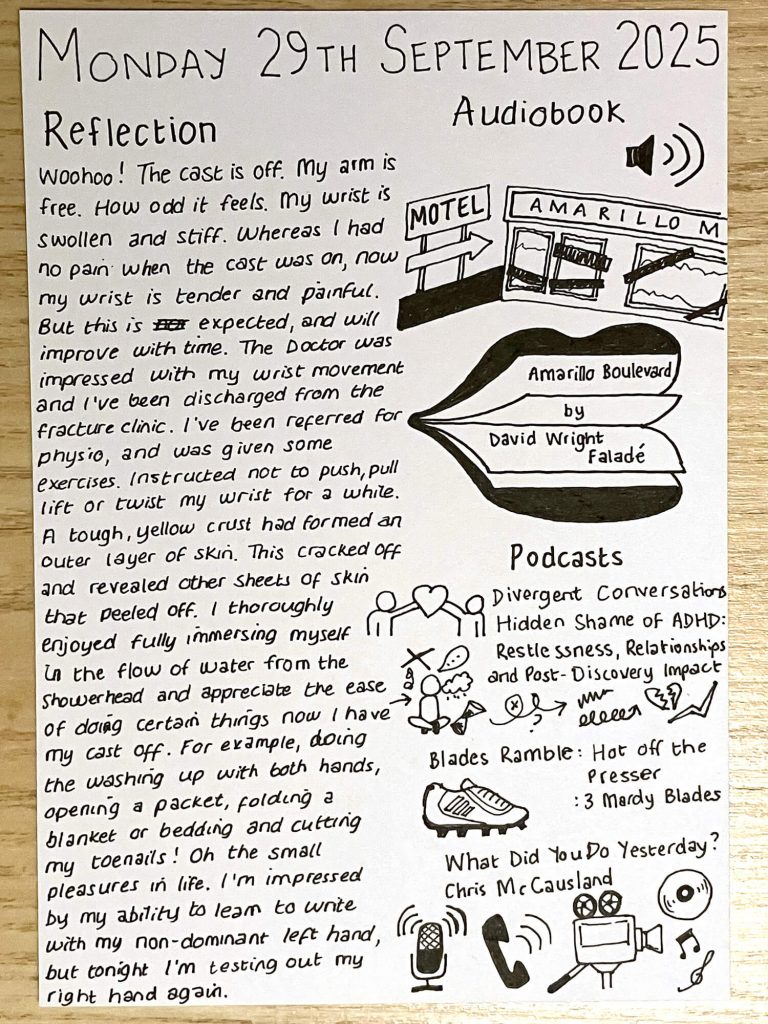 MONDAY 29TH SEPTEMBER 2025
Reflection
Woohoo! The cast is off. My arm is
free. How odd it feels. My wrist is
swollen and stiff. Whereas I had
no pain when the cast was on, now
my wrist is tender and painful.
But this is expected, and will
improve with time. The Doctor was
impressed with my wrist movement
and I've been discharged from the
fracture clinic. I've been referred for
physio, and was given some
exercises. Instructed not to push, pull
lift or twist my wrist for a while.
A tough, yellow crust had formed an
outer layer of skin. This cracked off
and revealed other sheets of skin
that peeled off. I thoroughly
enjoyed fully immersing myself
in the flow of water from the
showerhead and appreciate the ease
of doing certain things now I have
my cast off. For example, doing
the washing up with both hands,
opening a packet, folding a
blanket or bedding and cutting
my toenails! Oh the small
pleasures in life. I'm impressed
by my ability to learn to write
with my non-dominant left hand,
but tonight I'm testing out my
right hand again.
Audiobook
MOTEL
AMARILLO M
Amarillo Boulevard
by
David Wright
Faladé
Podcasts
Divergent Conversations
Hidden Shame of ADHD:
Restlessness, Relationships
and Post-Discovery Impact
?
Blades Ramble: Hot off the
Presser
: 3 Mardy Blades
What Did You Do Yesterday?
Chris McCausland